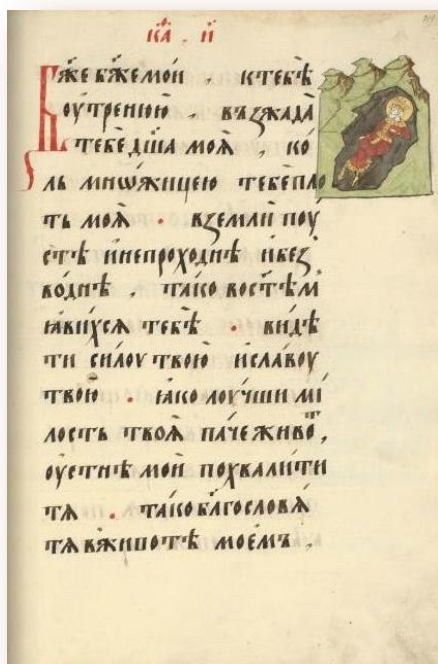 ка҃ . и҃
Бже бже мои , к тебѣ
оутренюю , възжада
тебе дша моя , ко
ль множицею тебе пло
ть моя . в земли поу
стѣ и непроходнѣ и без
воднѣ , тако во ст҃ѣм
явихся тебѣ . видѣ
ти силоу твою и славоу
твою . яко лоучши ми
лость твоя паче живот ,
оустнѣ мои похвалити
тя . тако блгословя
тя в животѣ моемъ .